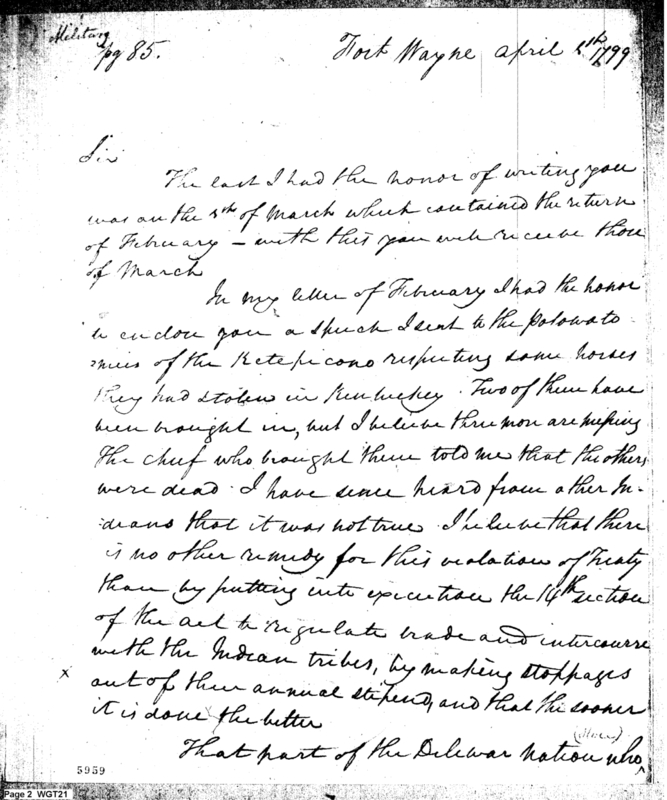 Military
pg 85.
Fort Wayne april 5th 1799
Sir
The last I had the honor of writing you
was on the 5th of March which contained the return
of February – with this you will receive those
of March
In my letter of February I had the honor
to enclose you a speech I sent to the Potowato
mies of the Ketepicono respecting some horses
they had stolen in Kentuckey. Two of them have
been brought in, but I believe three more are missing
The chief who brought them told me that the others
were dead. I have since heard from other In-
deans that it was not true. I believe that there
is no other remidy for this violation of Treaty
than by putting into execution the 14th section
of the act to regulate trade and intercourse
with the Indian tribes, by making stoppages
x
out of their annual stipend, and that the sooner
it is done the better
That part of the Delewar Nation who
5959
Page 2 WGT21